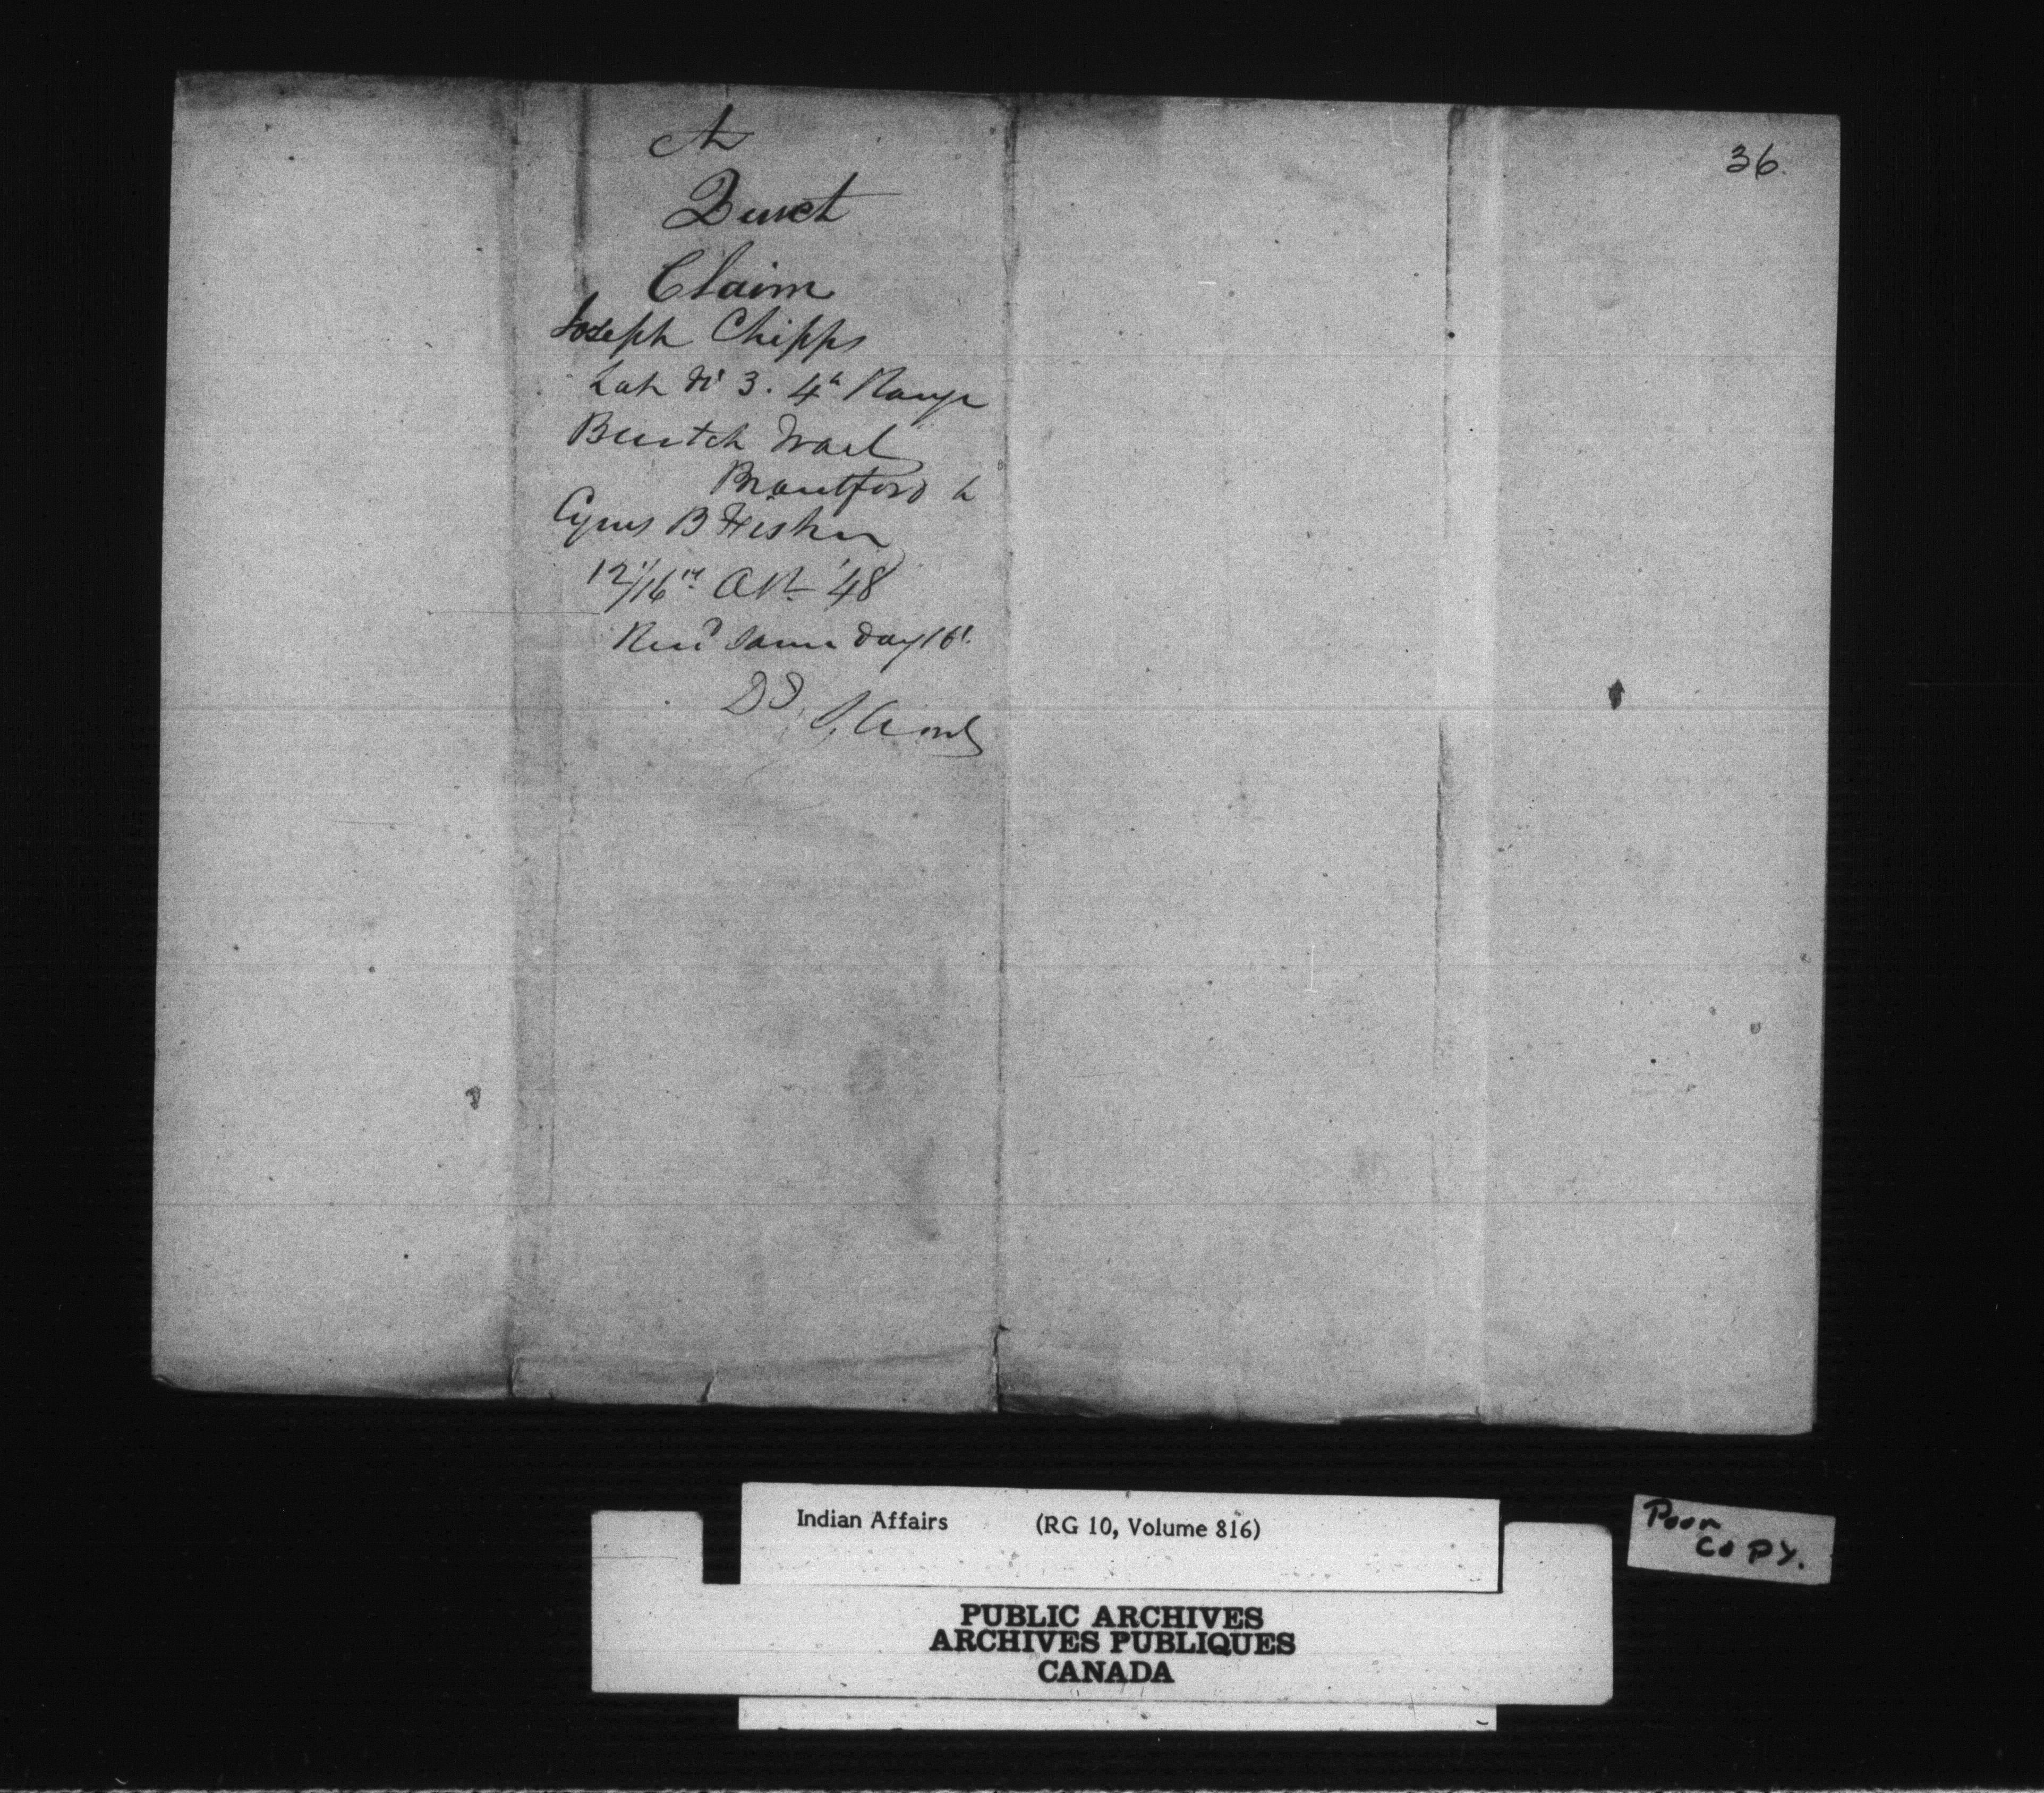 36.
Claim
Joseph Chipps
Lot No 3. 4th Range
Burtch Tract
Brantford
Cyrus B
12/16th Oct 48
Recd same day 16
DT
Indian Affairs (RG 10, Volume 816)
Poor
COPY.
PUBLIC ARCHIVES
ARCHIVES PUBLIQUES
CANADA